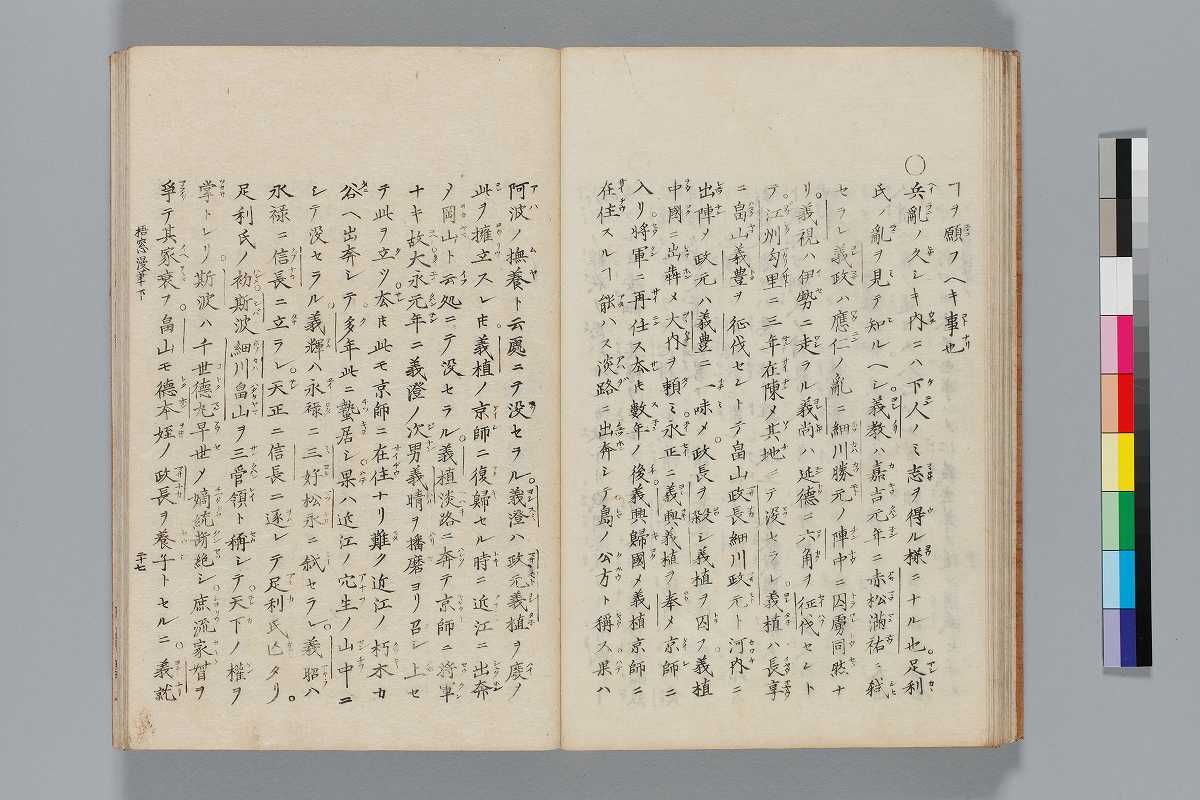 ヿヲ願フヘキ事也
○兵亂ノ久シキ内ニハ下人ノミ志ヲ得ル様ニナル也足利
氏ノ亂ヲ見テ知ルヘシ義教ハ嘉吉元年ニ赤松滿祐ニ弑
セラレ義政ハ應仁ノ亂ニ細川勝元ノ陣中ニ囚虜同然ナ
リ義視ハ伊勢ニ走ラル義尚ハ延德ニ六角ヲ征伐セント
テ江州勾里ニ三年在陳メ其地ニテ没セラレ義植ハ長享
ニ畠山義豊ヲ征伐セントテ畠山政長細川政元ト河内ニ
出陣メ政元ハ義豊ニ一味メ政長ヲ殺シ義植ヲ囚フ義植
中國ニ出犇メ大内ヲ頼ミ永正ニ義興義植ヲ奉メ京師ニ
入リ将軍ニ再任ス然𪜈數年ノ後義興歸國メ義植京師ニ
在住スルヿ能ハス淡路ニ出奔シテ島ノ公方ト稱ス果ハ
阿波ノ撫養ト云處ニテ没セラル義澄ハ政元義植ヲ廢ノ
此ヲ擁立スレ𪜈義植ノ京師ニ復歸セル時ニ近江ニ出奔
ノ岡山ト云処ニテ没セラル義植淡路ニ奔テ京師ニ将軍
ナキ故大永元年ニ義澄ノ次男義晴ヲ播磨ヨリ召シ上セ
テ此ヲ立ツ然𪜈此モ京師ニ在住ナリ難ク近江ノ朽木カ
谷ヘ出奔シテ多年此ニ蟄居シ果ハ近江ノ穴生ノ山中ニ
シテ没セラル義輝ハ永禄ニ三好松永ニ弑セラレ義昭ハ
永禄ニ信長ニ立ラレ天正ニ信長ニ逐レテ足利氏亡タリ
足利氏ノ初斯波細川畠山ヲ三管領ト稱シテ天下ノ權ヲ
掌トレリ斯波ハ千世德丸早世メ嫡統斷絶シ庶流家督ヲ
爭テ其家衰フ畠山モ德本姪ノ政長ヲ養子トセルニ義就
梧窓漫筆下
二十七